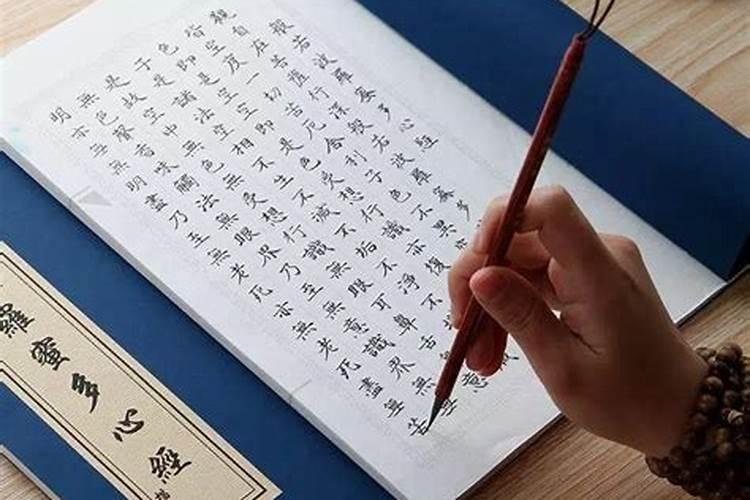 般若波羅蜜多心經
觀自在菩薩行深般若波羅蜜多
皆空度一切苦厄舍利子色不異空
色即是空空即是色受想行識亦復
子是諸法空相不生不滅不垢不淨不
是故空中無色無受想行識無眼耳鼻舌意
無色聲香味觸法無眼界乃至無意識界無無
明亦無無明盡乃至無老死亦無老死盡無苦
羅蜜多心經